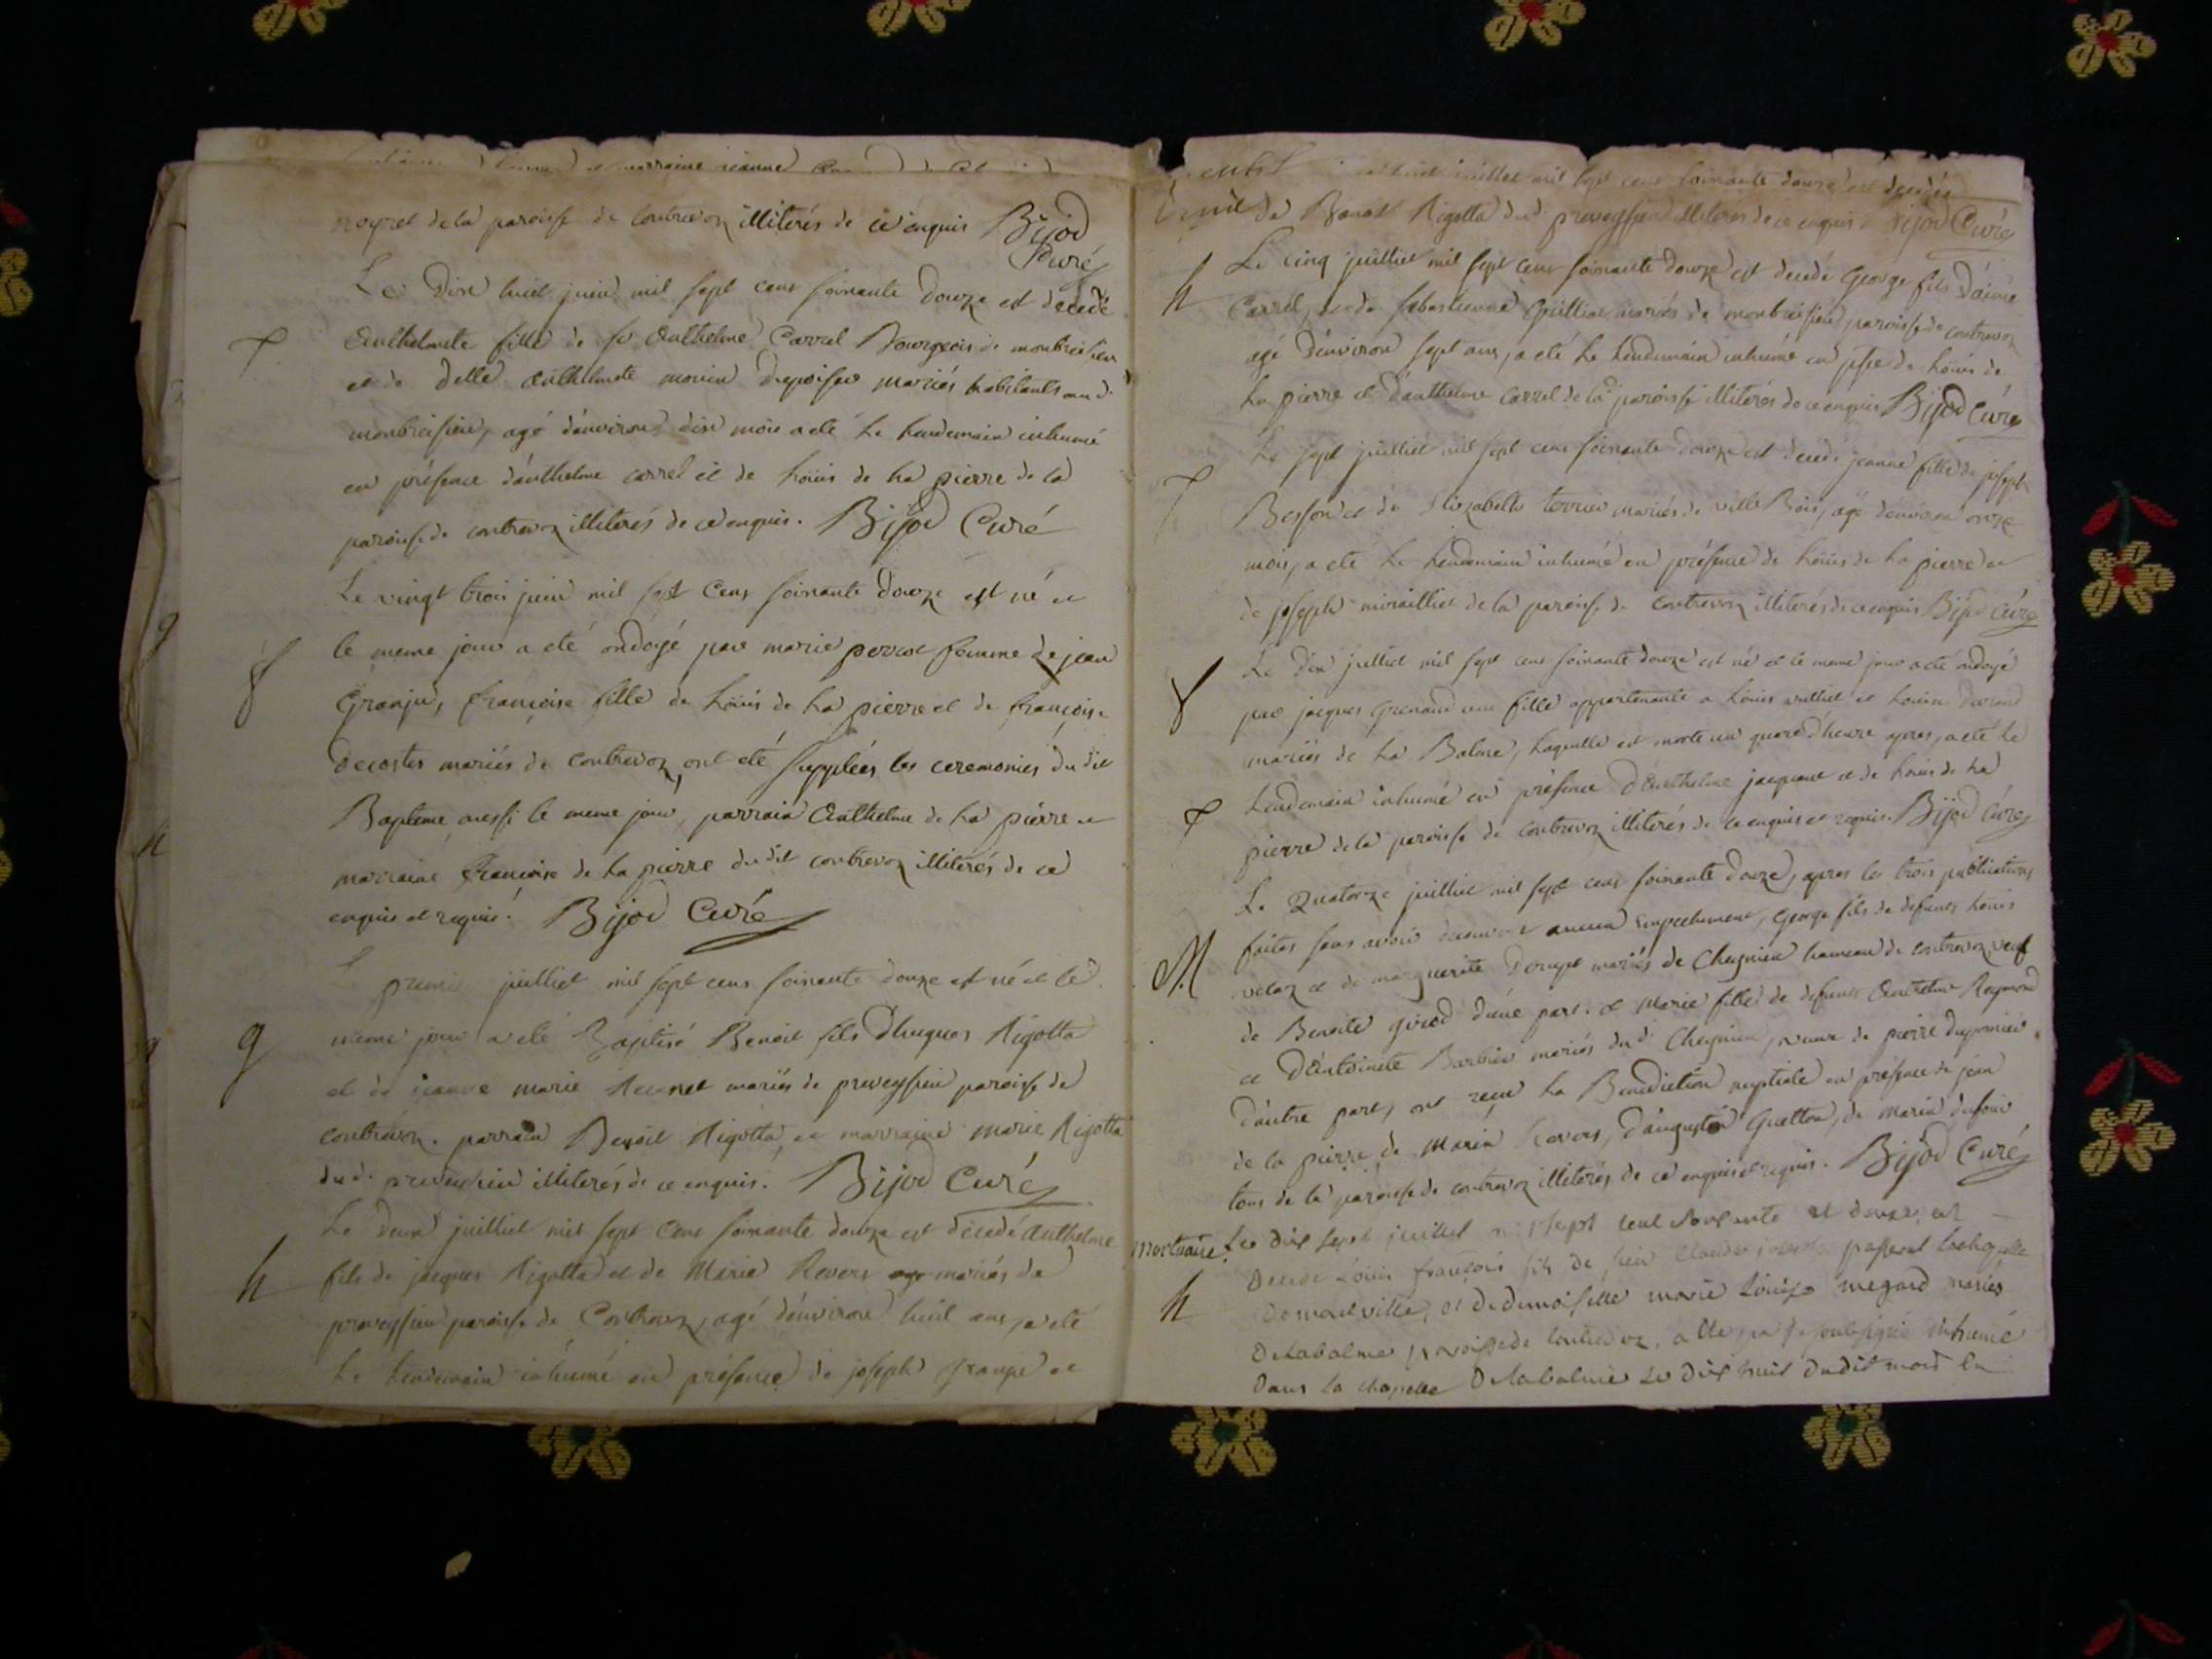 marraine jeanne
noyret de la paroisse de contrevoz illiterés de ce enquis Bijod
Curé
Le dix huit juin mil sept cens soixante douze est decedé
Anthelmete fille de sr Anthelme Carrel Bourgeois de montbreisieu
et de delle Anthelmete monin mariés habitants au d.
montbreisieu, agé d'environ dix mois a eté le lendemain inhumé
en présence d'anthelme carrel et de loüis de la pierre de la
paroisse de contrevoz illiterés de ce enquis. Bijod Curé
Le vingt trois juin mil sept cens soixante douze est né et
le meme jour a eté ondoyé par marie perret femme de jean
Granju, françoise fille de loüis de la pierre et de françoise
decostes mariés de contrevoz, ont eté supplées les ceremonies du dit
Bapteme aussi le meme jour, parrain Anthelme de la pierre et
marraine françoise de la pierre du dit contrevoz illiterés de ce
enquis et requis. Bijod Curé
Le premier juilliet mil sept cens soixante douze est né et le
meme jour a eté Baptisé Benoit fils d'hugues Rigotta
et de jeanne marie mariés de preveyssieu paroisse de
contrevoz. parrain Benoit Rigotta, et marraine marie Rigotta
du d. preveyssieu illiterés de ce enquis. Bijod Curé
Le deux juilliet mil sept cens soixante douze est decedé anthelme
fils de jacques Rigotta et de Marie Revers mariés de
preveyssieu paroisse de Contrevoz, agé d'environ huit ans, a eté
le lendemain inhumé en présence de joseph et
juillet mil sept cens soixante douze est decedée
de Benoit Rigotta du d. preveyssieu illiterés de ce enquis Bijod Curé
h Le cinq juilliet mil sept cens soixante douze est decedé George fils d'aimé
Carrel, et de sebastienne Guilliot mariés de montbreisieu, paroisse de contrevoz
agé d'environ sept ans, a eté le lendemain inhumé en psce de loüis de
la pierre et d'anthelme carrel de la paroisse illiterés de ce enquis Bijod Curé
Le sept juilliet mil sept cens soixante douze est decedé jeanne fille de joseph
Besson et de Elizabeth terrier mariés de ville Bois, agé d'environ onze
mois, a eté le lendemain inhumé en présence de loüis de la pierre et
de joseph mirailliet de la paroisse de contrevoz illiterés de ce enquis Bijod Curé
Le dix juilliet mil sept cens soixante douze est né et le meme jour a eté ondoyé
par jacques Grenaud une fille appartenante a loüis et durand
mariés de la Balme, laquelle est morte un quart d'heure apres, a eté le
lendemain inhumé en présence d'Anthelme jacquent et de loüis de la
pierre de la paroisse de contrevoz illiterés de ce enquis et requis. Bijod Curé
Le Quatorze juilliet mil sept cens soixante douze, apres les trois publications
M faites sans avoir decouvert aucun empechement, George fils de defunts loüis
veloz et de marguerite mariés de Cheignieu hameau de contrevoz, veuf
de Benoite girod d'une part. et Marie fille de defunts Anthelme Reymond
et d'Antoinete Barbier mariés du d. Cheignieu, veuve de pierre
d'autre part, ont reçu la Benediction nuptiale en présence de jean
de la pierre, de Marin Revers, d'augustin Guetton, de Marin dufour
tous de la paroisse de contrevoz illiterés de ce enquis et requis. Bijod Curé
mortuaire. Le dix sept juillet mil sept cent soixante et douze, est
h decedé Loüis françois fils de sieur Claude passerat
et de demoiselle marie Loüise megard mariés
Delabalme paroisse de contrevoz, a eté par je soussigné inhumé
Dans la chapelle Delabalme le dix huit dudit mois en